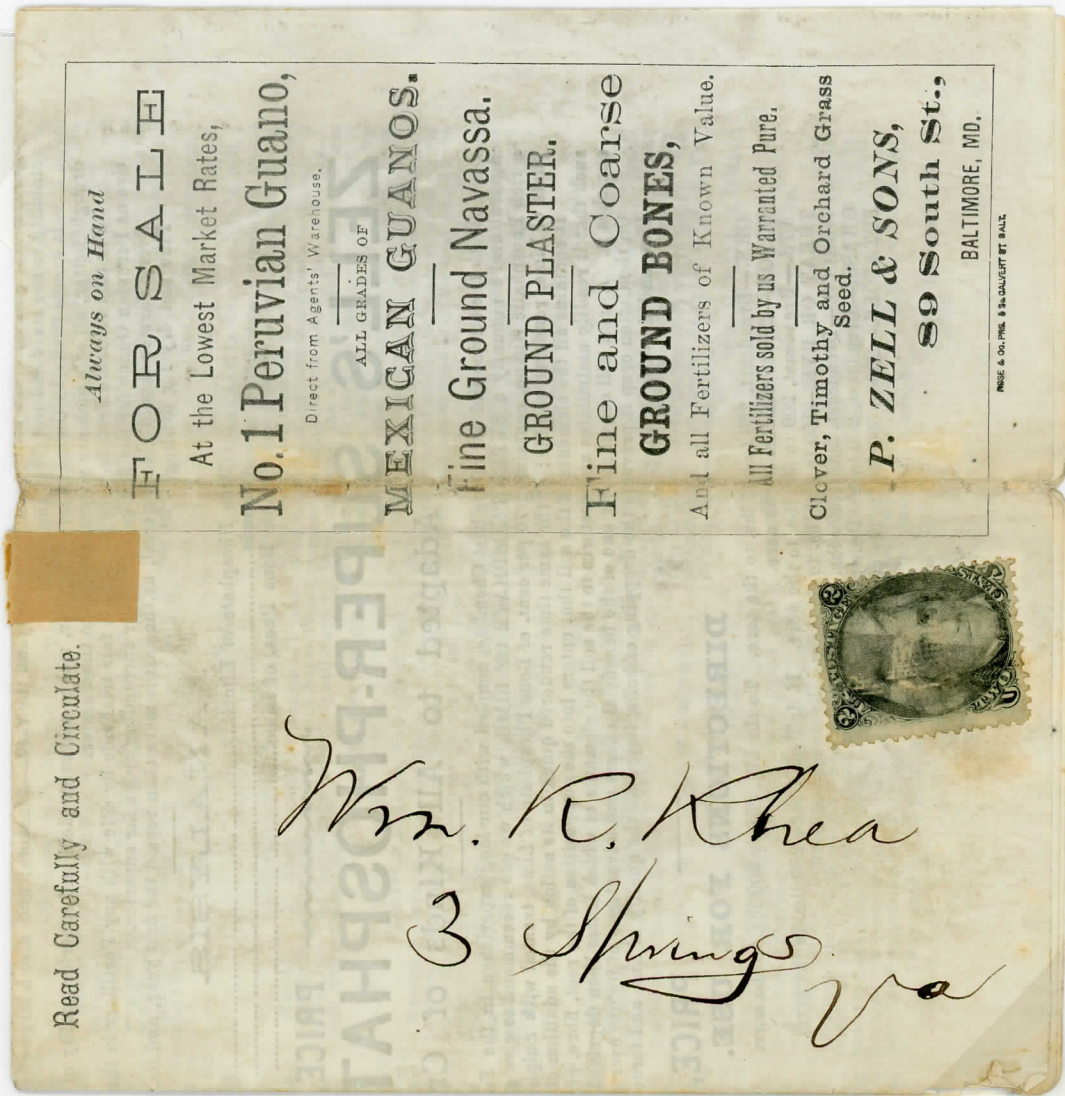 Always on Hand
FOR SALE
At the Lowest Market Rates,
No. 1 Peruvian Guano,
Direct from Agents' Warehouse.
ALL GRADES OF
MEXICAN GUANOS.
Fine Ground Navassa.
GROUND PLASTER.
Fine and Coarse
GROUND BONES,
And all Fertilizers of Known Value.
All Fertilizers sold by us Warranted Pure.
Clover, Timothy and Orchard Grass
Seed.
P. ZELL & SONS,
89 South St.,
BALTIMORE, MD.
Read Carefully and Circulate.
Wm. R. Rhea
3 Springs
Va